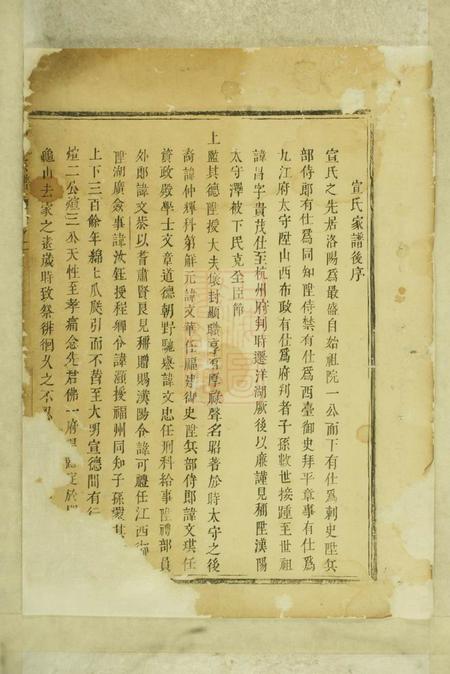 宣氏家譜後序
宣氏之先居洛陽爲最盛自始祖院一公而下有仕爲刺史陞兵
部侍郎有仕爲同知陞侍禁有仕爲西臺御史拜平章事有仕爲
九江府太守陞山西布政有仕爲府判者子孫數世接踵至世祖
諱昌字貴茂仕至杭州府判時遷洋湖厥後以廉謹見稱陞漢陽
太守澤被下民克全臣節
上監其德陞授大夫褒封顯職享有厚祿聲名昭著於時太守之後
裔諱仲輝科第解元諱文華任福建御史陞兵部侍郎諱文琪任
資政殿學士文章道德朝野馳譽諱文忠任刑科給事陞禮部員
外郎諱文恭以耆肅賢良見聘贈賜漢陽令諱可禮任江西
陞湖廣僉事諱汝鈺授程鄉令諱灝授福州同知子孫
上下三百餘年綿綿瓜瓞引而不替至大明宣德間有行
煊二公煊三公天性至孝痛念先君佛一府君
龜山去家之遠歲時致祭徘徊久之不忍